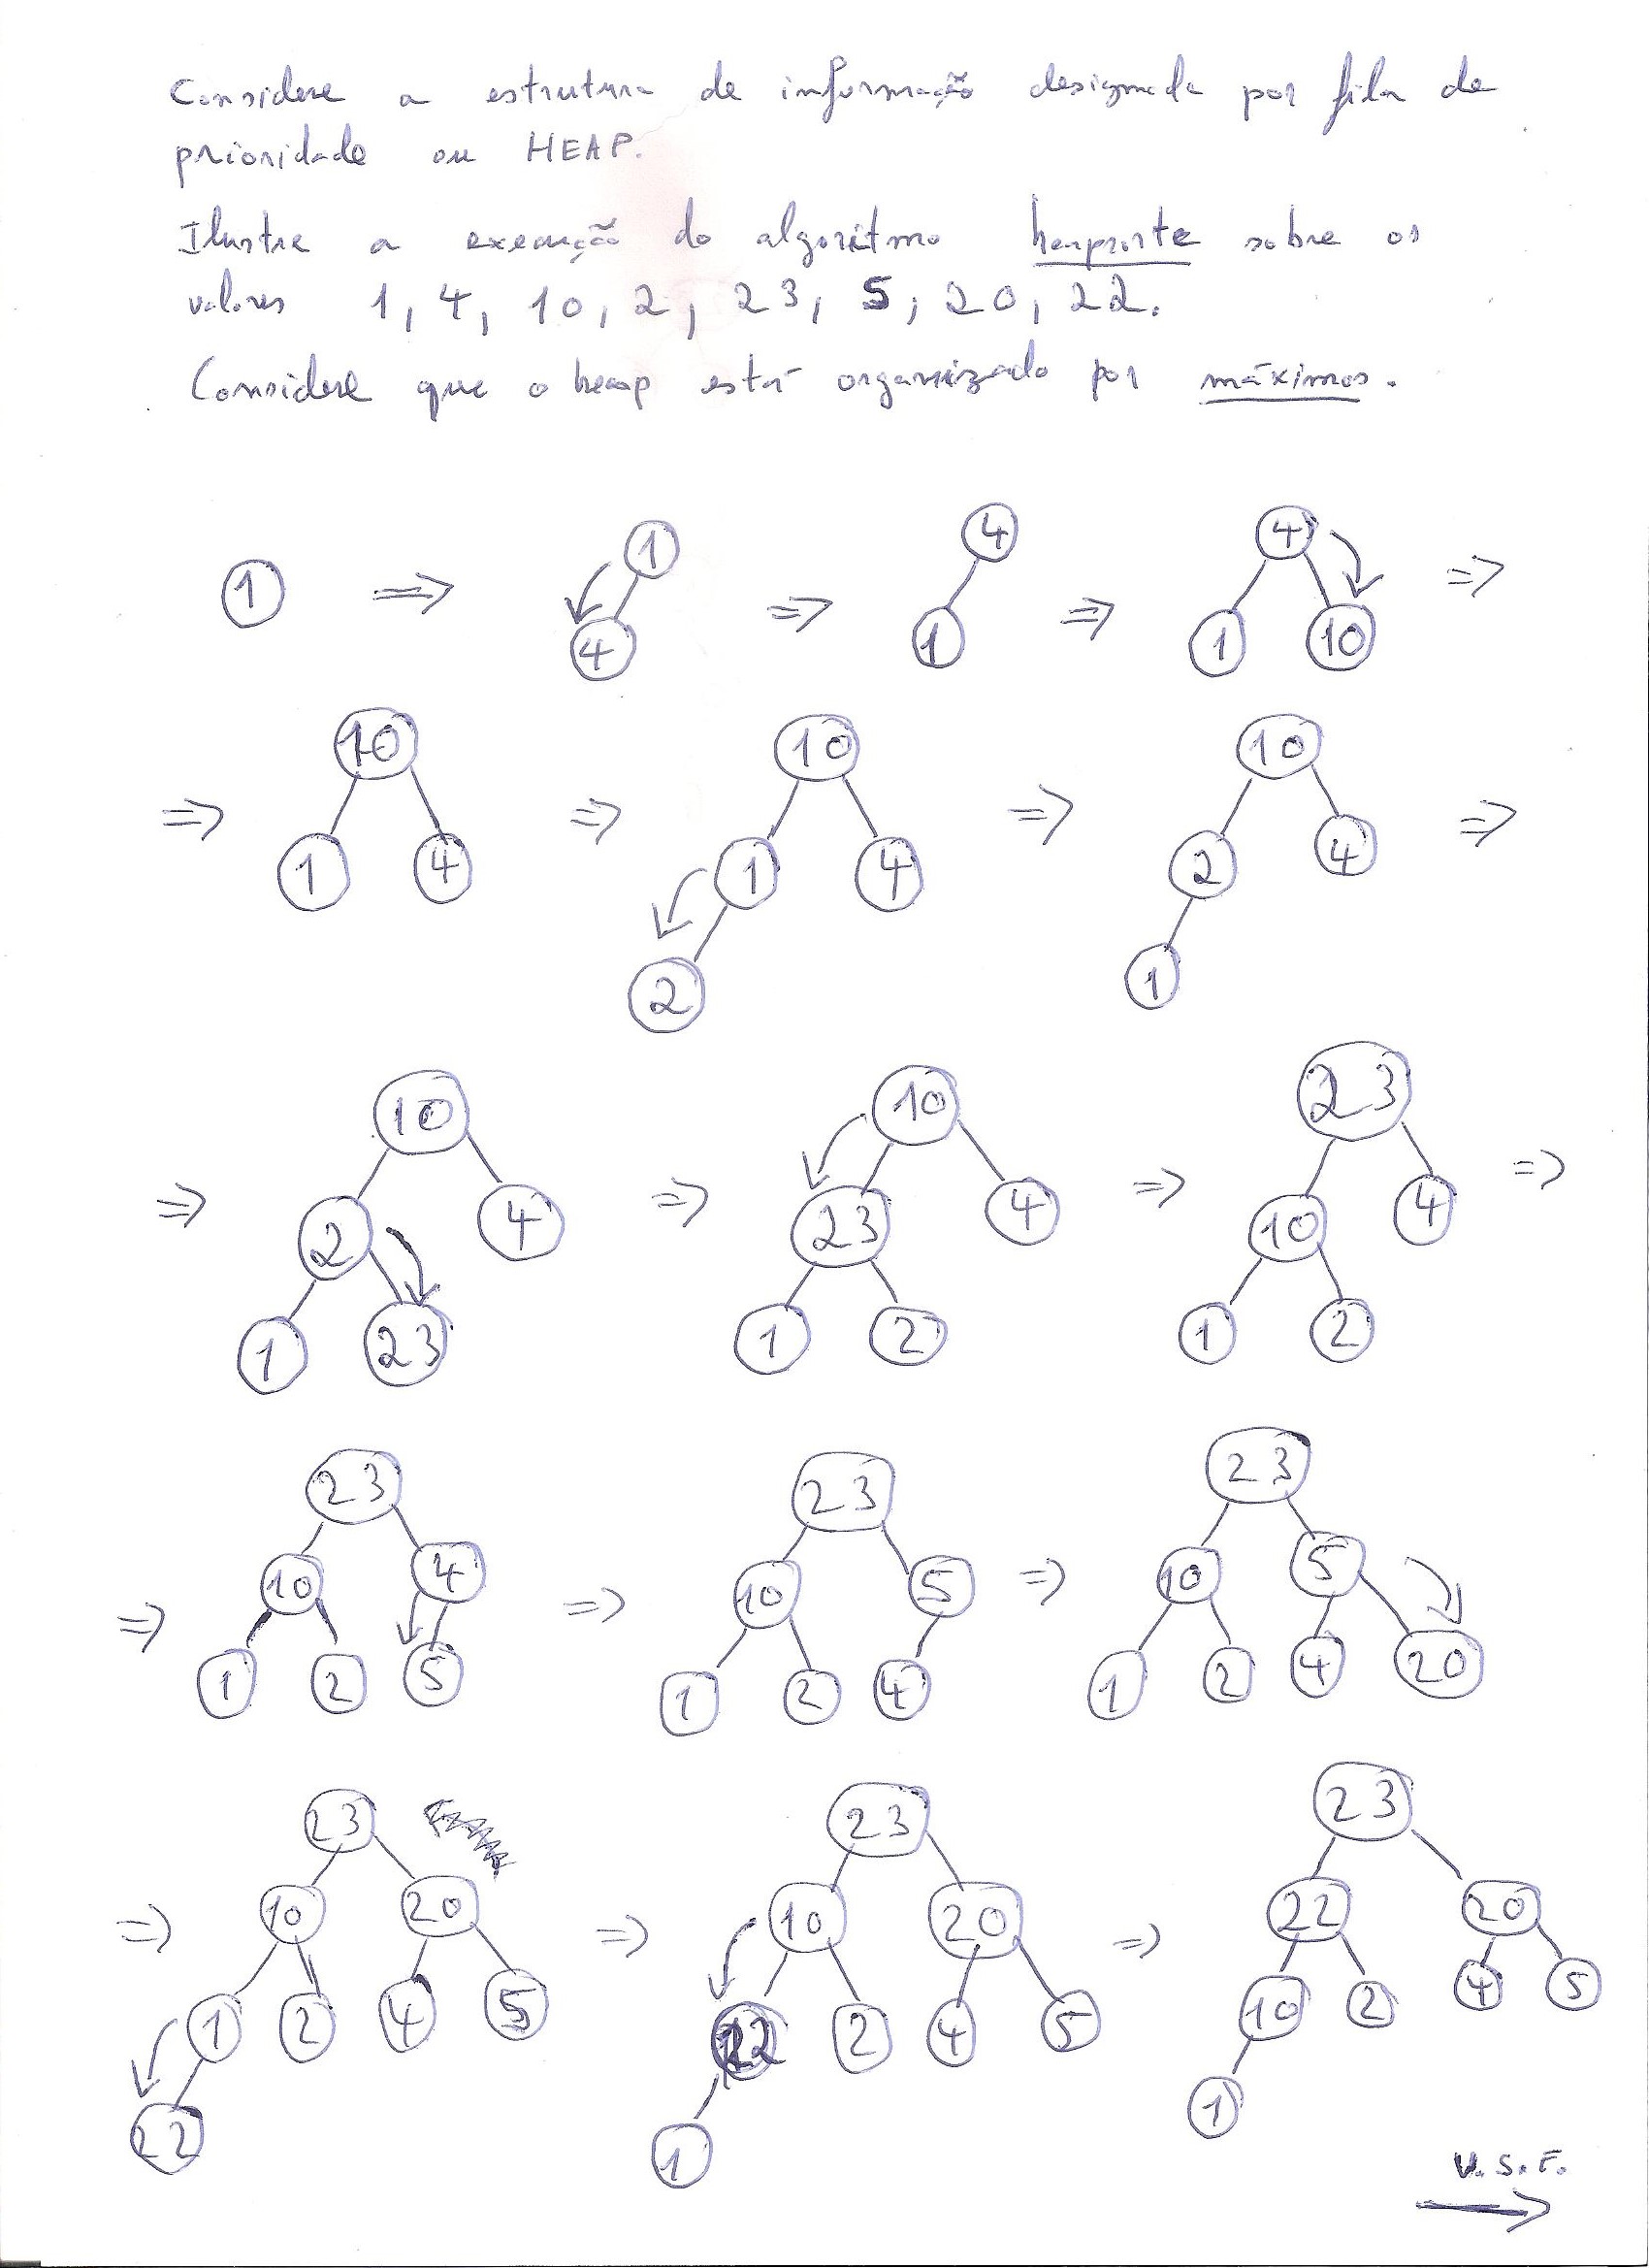 Considere a estrutura de informação designada por fila de
prioridade ou HEAP.
Ilustre a execução do algoritmo heapsorte sobre os
valores 1, 4, 10, 2, 23, 5, 20, 22.
Considere que o heap está organizado por máximos.
1 => 1 4 => 4 1 => 4 1 10 =>
=> 10 1 4 => 10 1 4 2 => 10 2 4 1 =>
=> 10 2 4 1 23 => 10 23 4 1 2 => 23 10 4 1 2 =>
=> 23 10 4 1 2 5 => 23 10 5 1 2 4 => 23 10 5 1 2 4 20
=> 23 10 20 1 2 4 5 22 => 23 10 20 22 2 4 5 1 => 23 22 20 10 2 4 5 1
V.S.F.